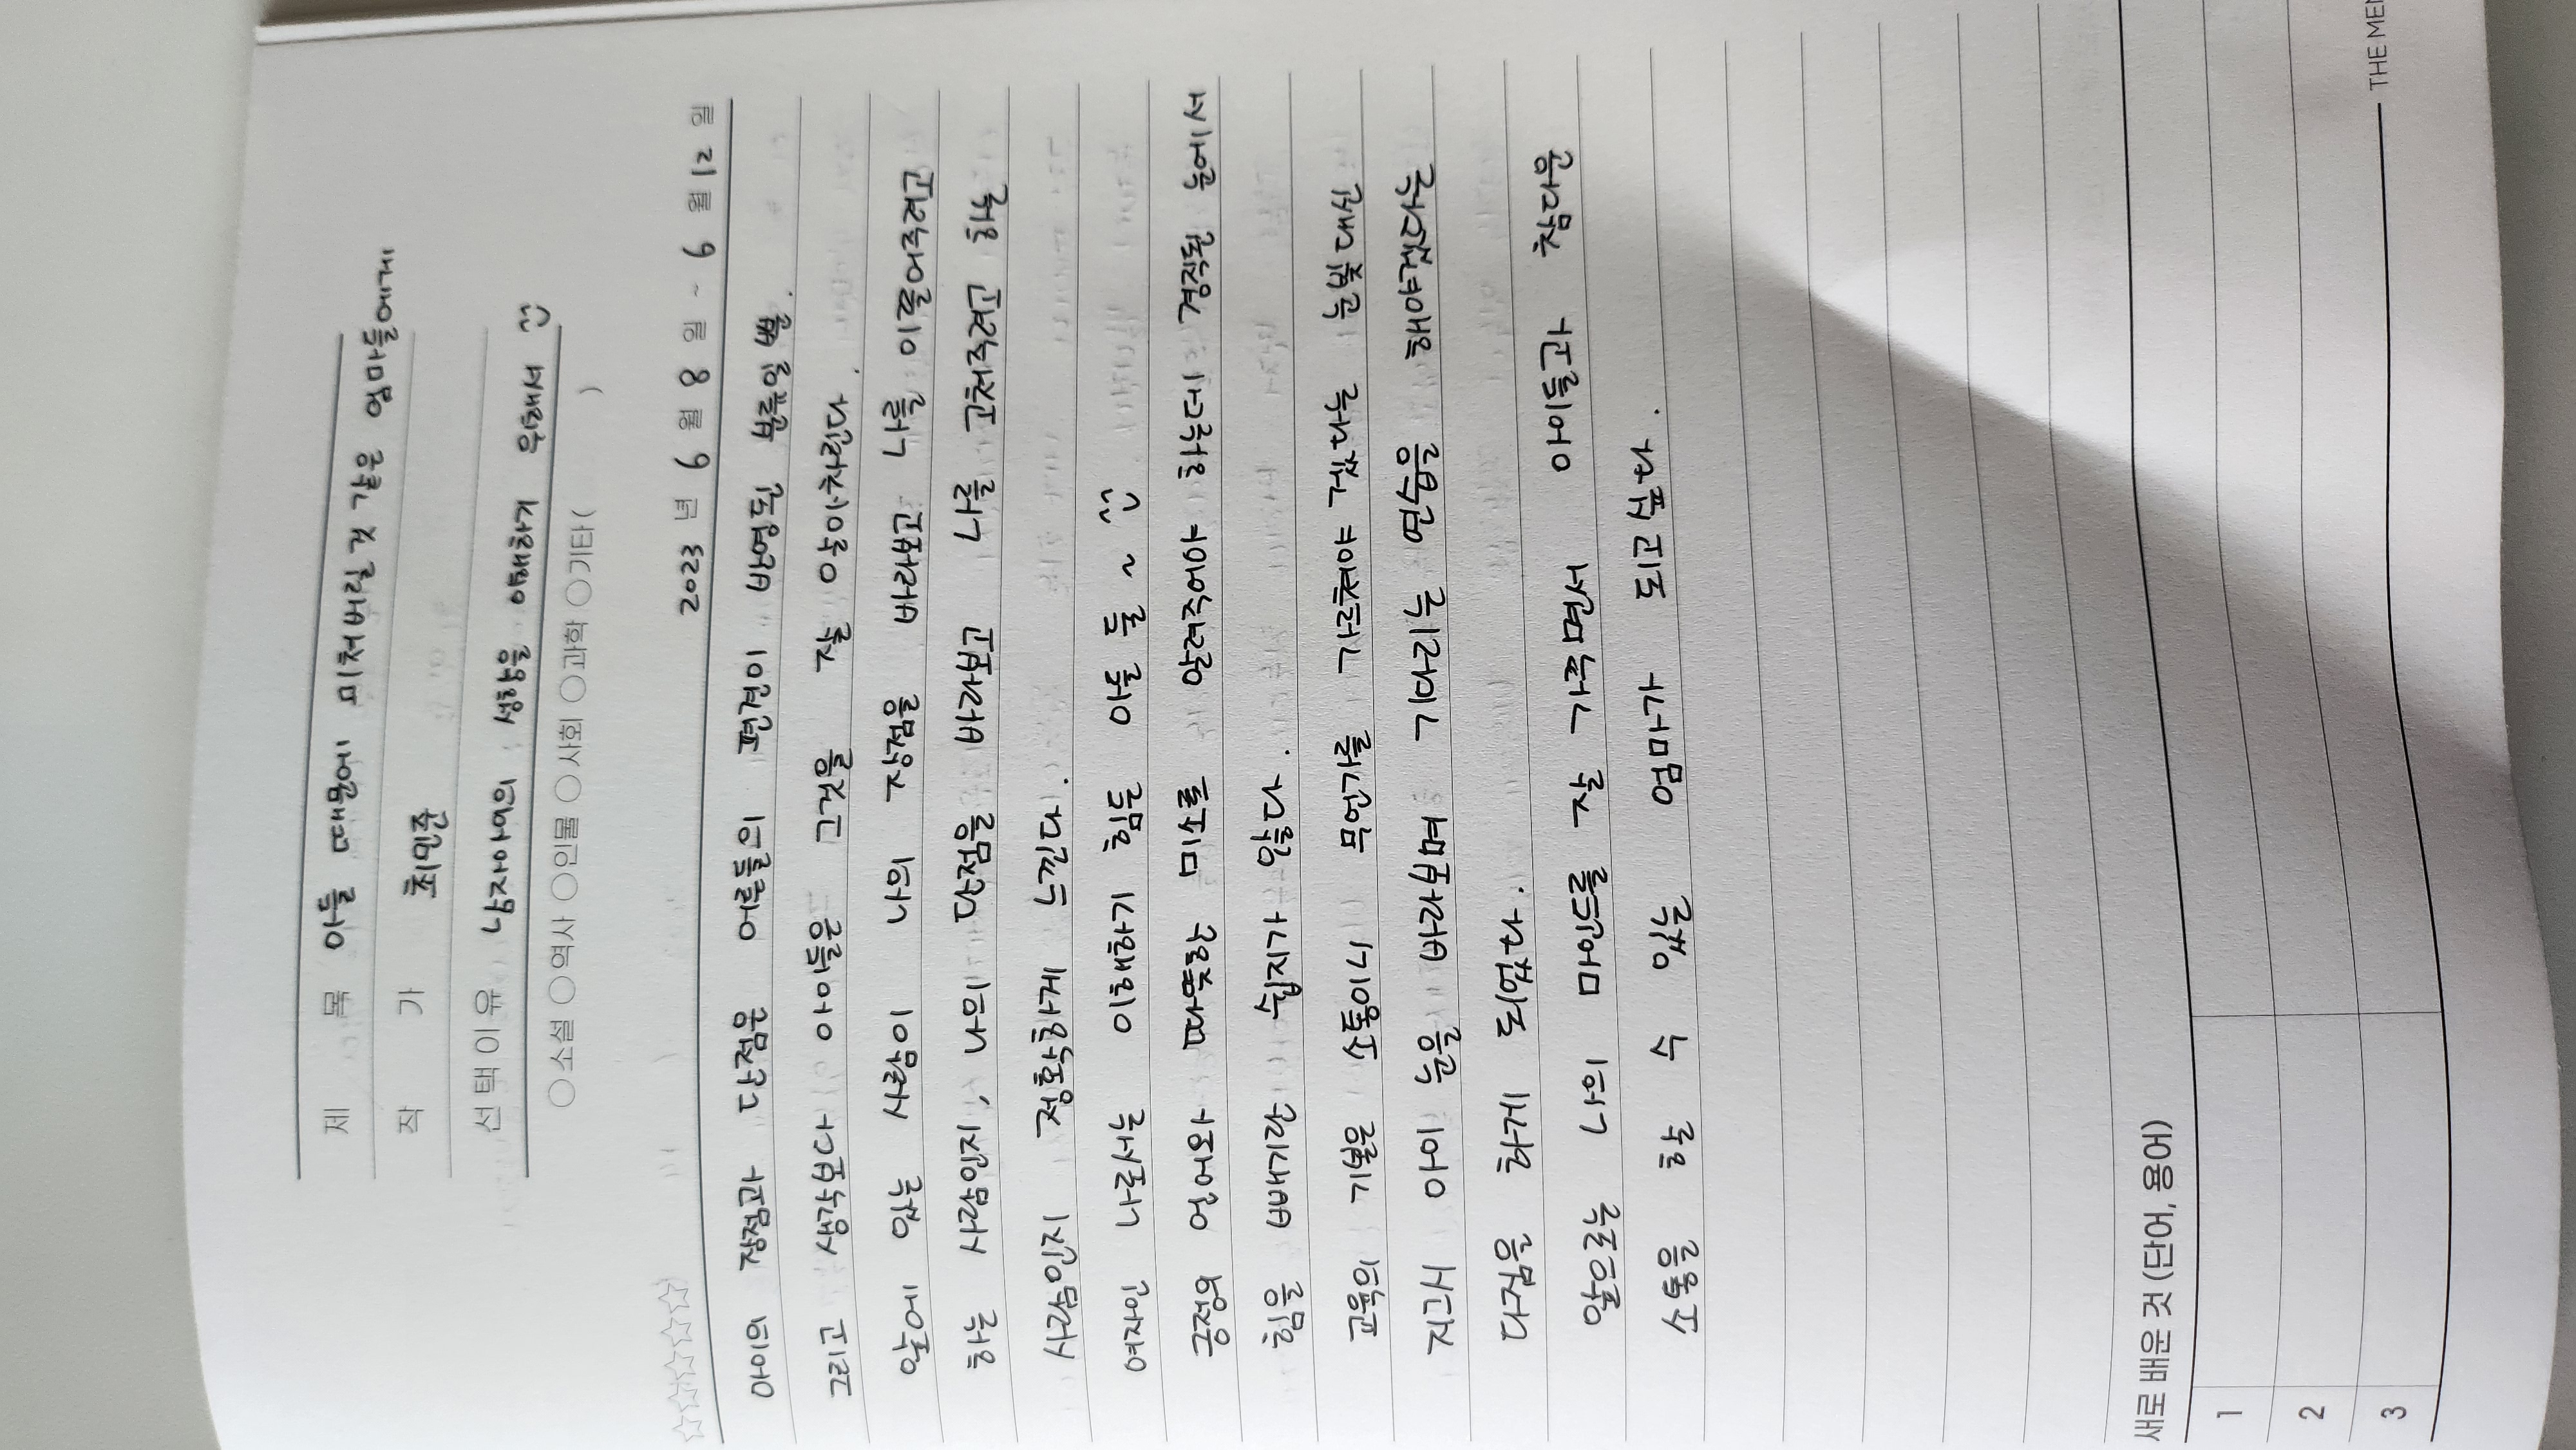 제 목 아들 때문에 미쳐버릴 것 같은 엄마들에게
작 가 최민준
선택이유 남자아이의 성향을 이해하기 위해서 ^^
○소설 ○역사 ○인물 ○사회 ○과학 ○기타 ( )
☆☆☆☆☆
2023 년 6 월 8 일 ~ 6 월 12 일
아이의 장점과 단점은 어른들의 편견이 반영된 분류일 뿐.
그리고 생각보다 아이들은 그것을 잘 알아차린다.
앞에 있는 사람이 나의 장점을 바라보고 나를 이끌어주려고
하는 사람인지, 나의 단점을 바라보고 나를 고쳐주려고 하는
사람인지 정확하게 느낀다.
여자인 나로서는 이해하기 힘든 아들 둘 ~ ^^
긍정의 언어와 따뜻한 미소로 알려주어야 하는데 경직된 눈에서
힘을 빼기란 쉽지가 않다.
교육의 기본은 소통이니 무언가를 가르쳐야 겠다는 눈빛 대신
지그시 아이 눈을 바라보며 기다리는 연습을 해야겠다는
다짐을 하게 되었다.
앞으로는 나의 마인드를 잘 가꾸면서 아이들과 참다운
소통을 할 수 있는 엄마가 되고싶다.
새로 배운 것 (단어, 용어)
1
2
3
THE MEN